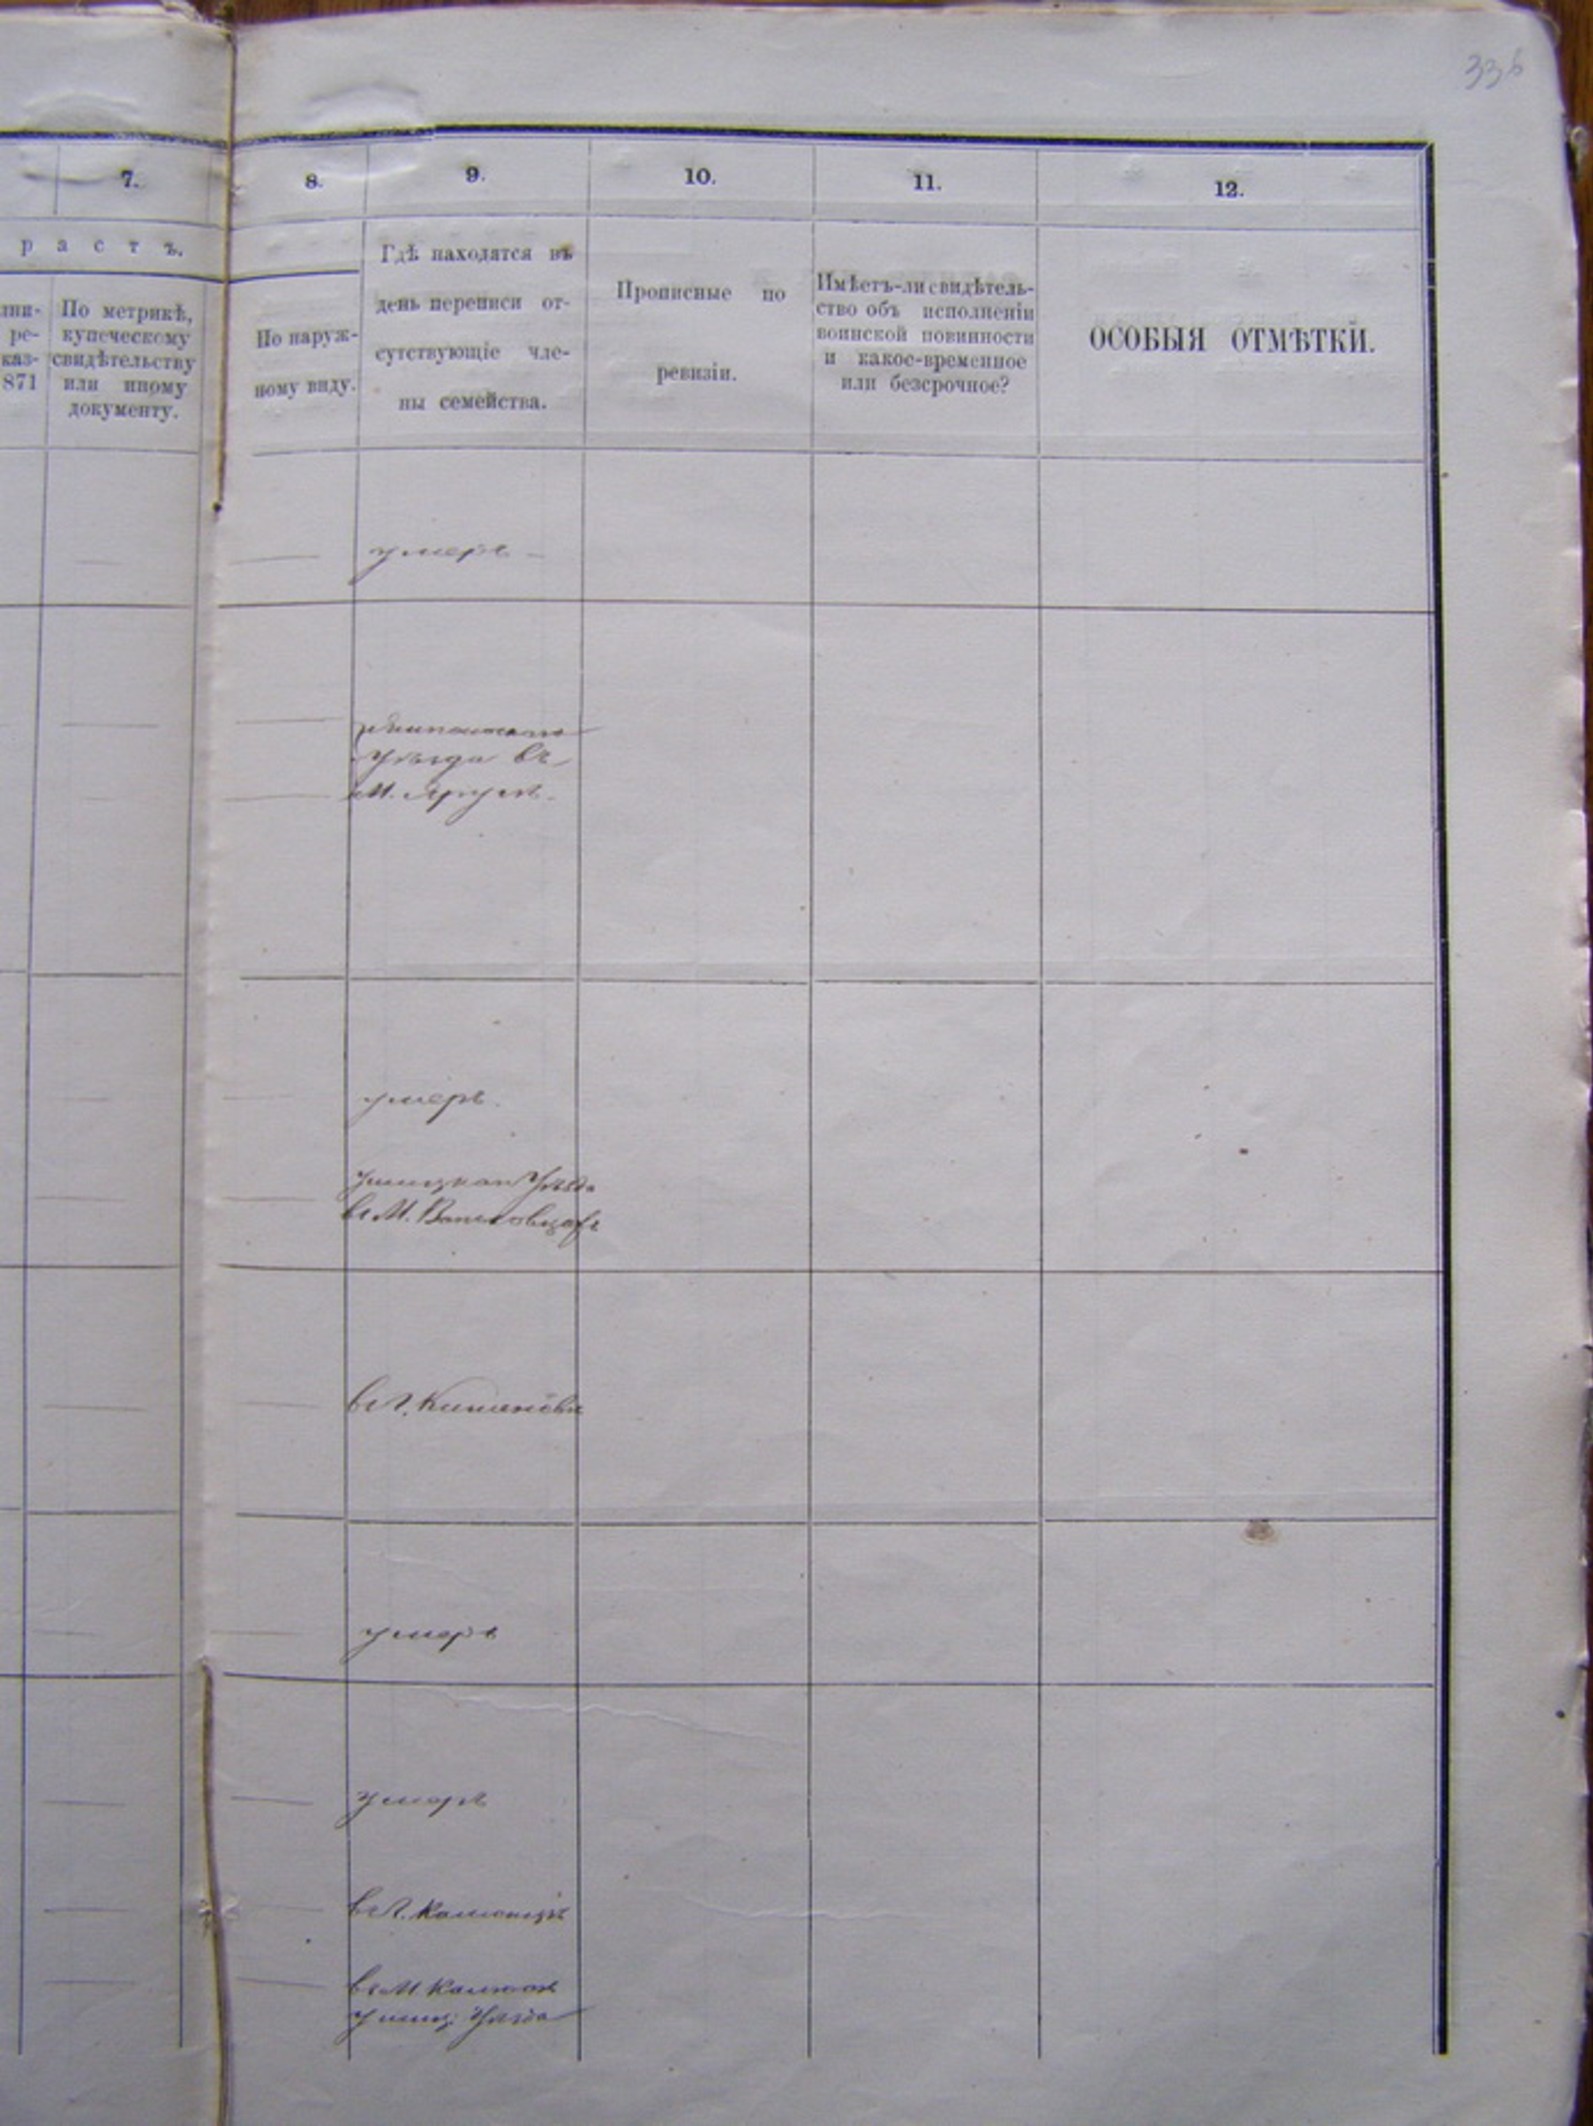 336
7.
8.
9.
10.
11.
12.
р а с т ъ.
По метрикѣ,
купеческому
свидѣтельству
или иному
документу.
ре-
каз-
871
По наруж-
ному виду.
Гдѣ находятся въ
день переписи от-
сутствующіе чле-
ны семейства.
Прописные по
ревизіи.
Имѣетъ-ли свидѣтель-
ство объ исполненіи
воинской повинности
и какое-временное
или безсрочное?
ОСОБЫЯ ОТМѢТКИ.
умеръ
уѣзда въ
М.
умеръ.
Ушицкаго Уѣзда
въ М.
въ г. Кишеневѣ
умеръ
умеръ
въ г. Каменцѣ
въ М. Калюсѣ
Ушиц. Уѣзда